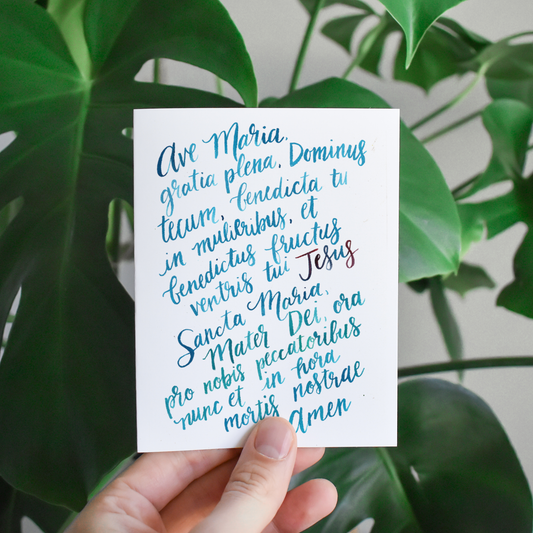 Ave Maria.
gratia plena, Dominus
tecum, benedicta tu
in mulieribus, et
benedictus fructus
ventris tui Jesus
Sancta Maria,
Mater Dei, ora
pro nobis peccatoribus
nunc et in hora
mortis nostrae
Amen